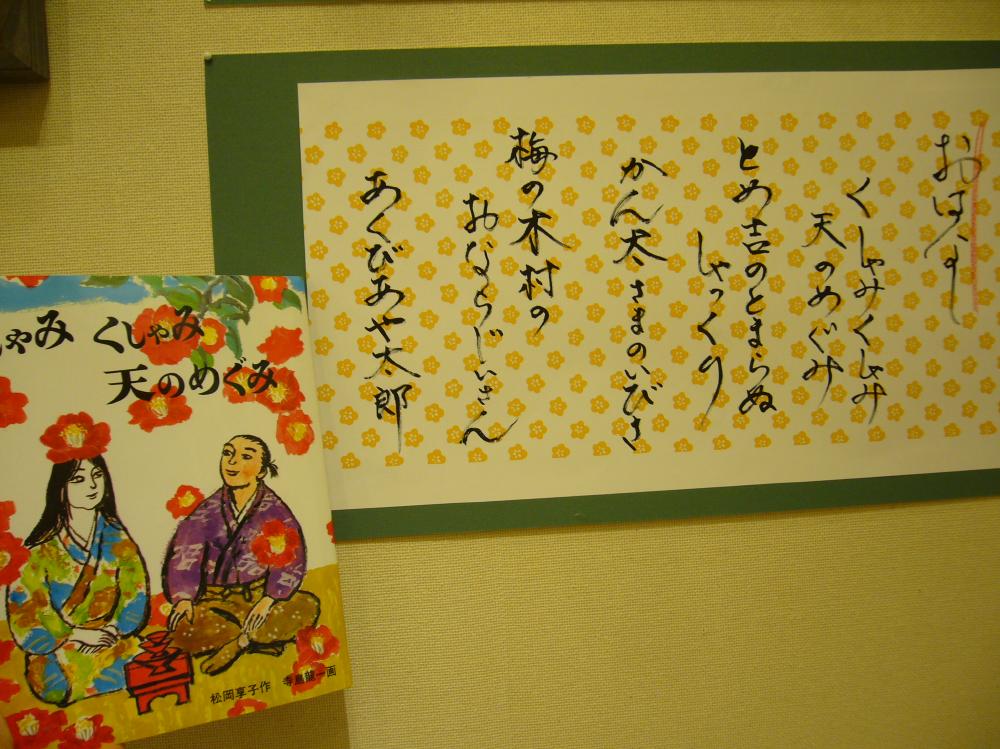 おはなし
くしゃみくしゃみ
天のめぐみ
とめ吉のとまらぬ
しゃっくり
かん太さまのいびき
梅の木村の
おならじいさん
あくびあや太郎
しゃみ くしゃみ
天のめぐみ
松岡享子作 寺島龍一画